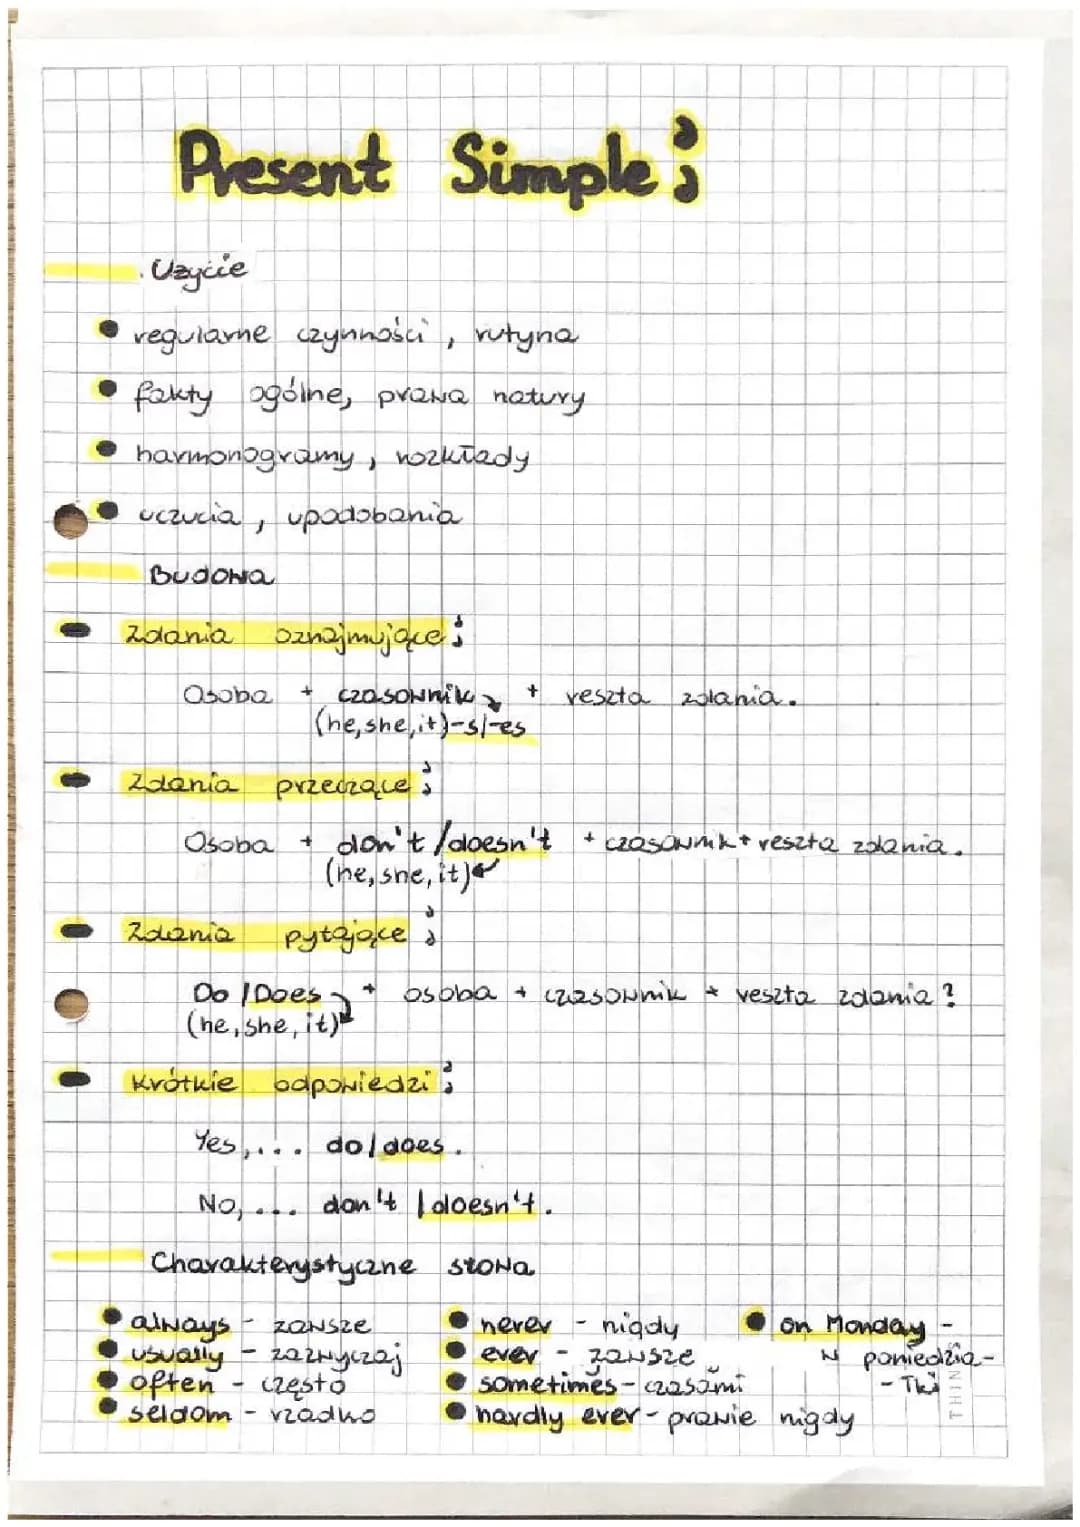 Present Simple:
Użycie
regularne czynności, rutyna
fakty ogólne, prawa natury
harmonogramy, rozkłady
uczucia, upodobania
Budowa
Zdania oznajmujące:
Osoba + czasownik + reszta zdania.
(he, she, it)-s/-es
Zdania przeczące:
Osoba + don't/doesn't + czasownik + reszta zdania.
(he, she, it)
Zdania pytające:
Do/Does + osoba + czasownik + reszta zdania?
(he, she, it)
Krótkie odpowiedzi:
Yes,... do/does.
No,... don't/doesn't.
Charakterystyczne słowa
always - zawsze
usually - zazwyczaj
often - często
seldom - rzadko
never - nigdy
ever - zawsze
sometimes - czasami
hardly ever - prawie nigdy
on Monday -
w poniedzia-
-łki
THINGS